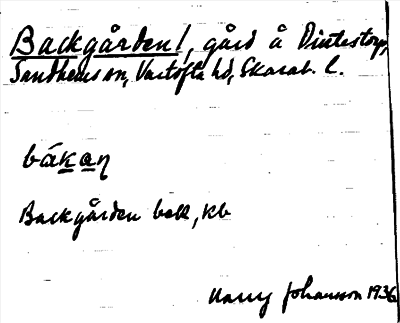 Backgården!, gård å Dintestorp,
Sandhems sn, Vartofta hd, Skarab. l.
bákaŋ
Backgården bell, kb
Harry Johansson 1936